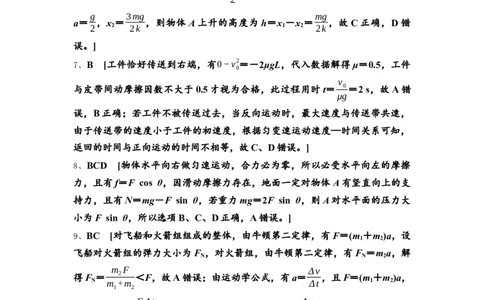 2
a＝g/2，x₂＝3mg/2k，则物体A上升的高度为h＝x₁-x₂＝mg/2k，故C正确，D错
误。]
7、B [工件恰好传送到右端，有0-v₀²＝-2μgL，代入数据解得μ＝0.5，工件
与皮带间动摩擦因数不大于0.5才视为合格，此过程用时t＝v₀/μg＝2 s，故A错
误，B正确；若工件不被传送过去，当反向运动时，最大速度与传送带共速，
由于传送带的速度小于工件的初速度，根据匀变速运动速度—时间关系可知，
返回的时间与正向运动的时间不相等，故C、D错误。]
8、BCD [物体水平向右做匀速运动，合力必为零，所以必受水平向左的摩擦
力，且有f＝F cos θ，因滑动摩擦力存在，地面一定对物体A有竖直向上的支
持力，且有N＝mg-F sin θ，若重力mg＝2F sin θ，则A对水平面的压力大
小为F sin θ，所以选项B、C、D正确，A错误。]
9、BC [对飞船和火箭组组成的整体，由牛顿第二定律，有F＝(m₁+m₂)a，设
飞船对火箭组的弹力大小为F_N，对火箭组，由牛顿第二定律，有F_N＝m₂a，解
得F_N＝m₂F/m₁+m₂＜F，故A错误；由运动学公式，有a＝Δv/Δt，且F＝(m₁+m₂)a，